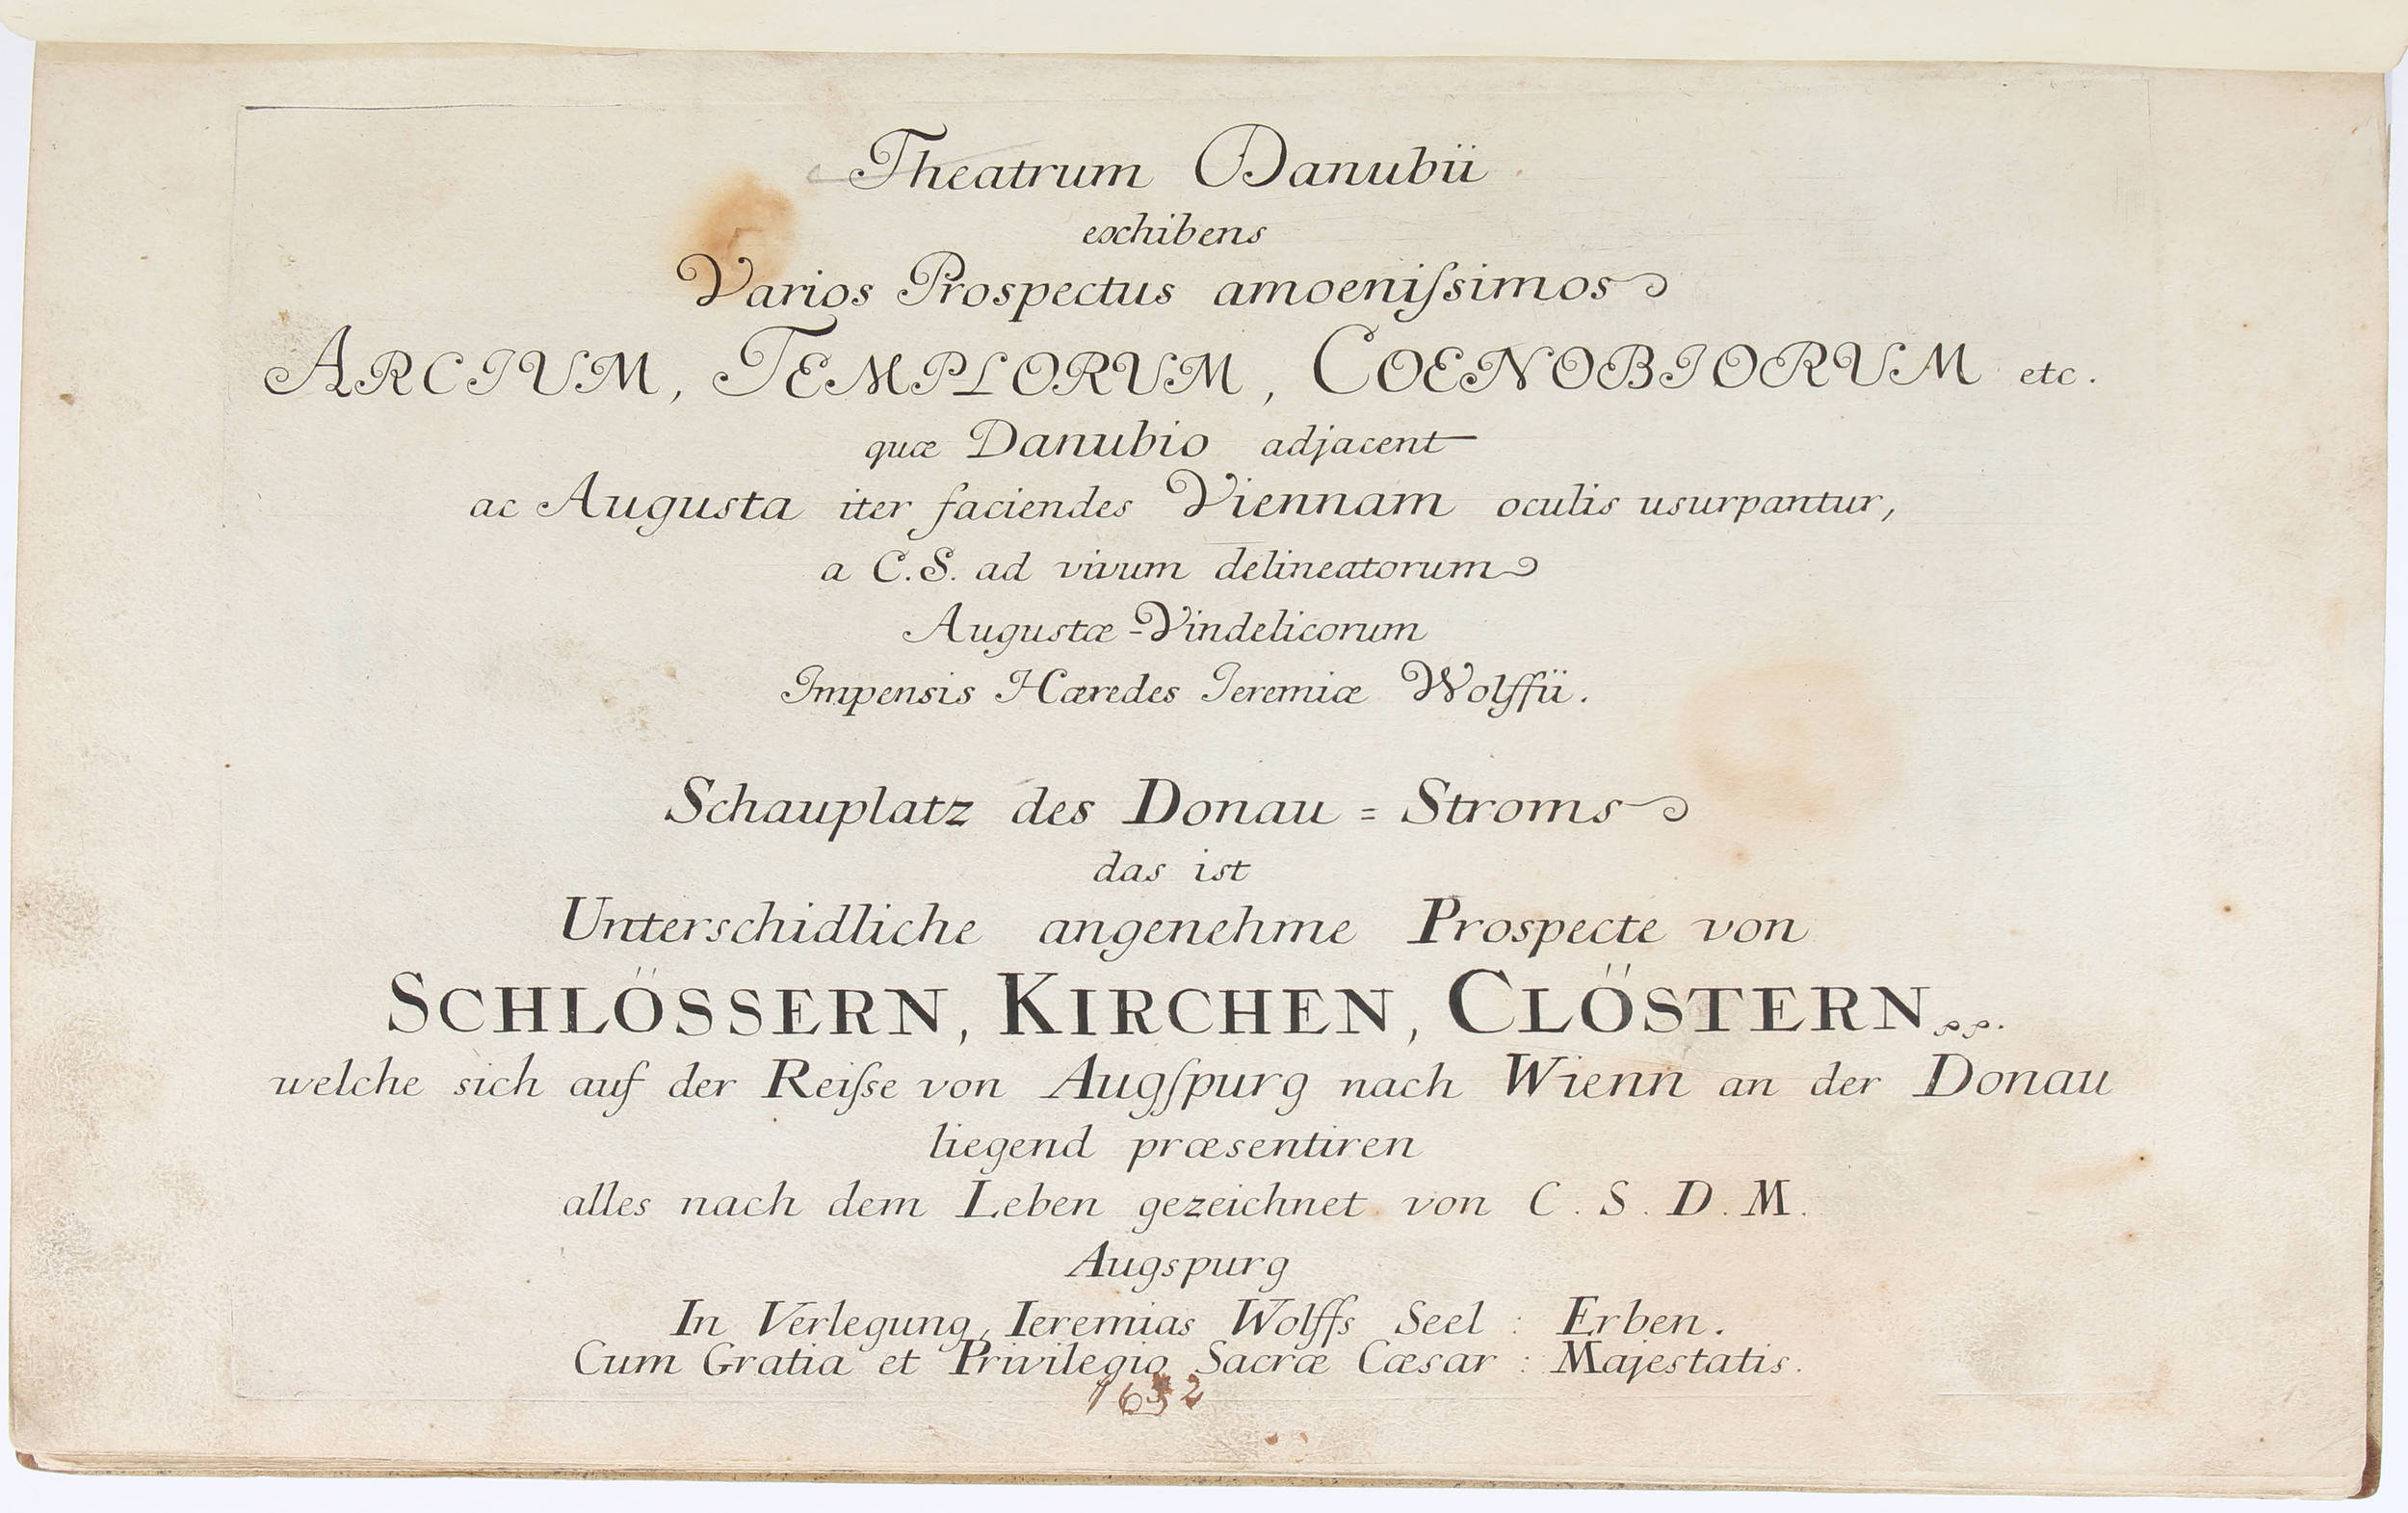 Theatrum Danubii
exhibens
Varios Prospectus amoeniſsimos
ARCIUM, TEMPLORUM, COENOBIORUM etc.
quæ Danubio adjacent
ac Augusta iter faciendes Viennam oculis usurpantur,
a C.S. ad vivum delineatorum
Augustæ-Vindelicorum
Impensis Hæredes Ieremiæ Wolffii.
Schauplatz des Donau = Stroms
das ist
Unterschidliche angenehme Prospecte von
SCHLÖSSERN, KIRCHEN, CLÖSTERN
welche sich auf der Reiſse von Augſpurg nach Wienn an der Donau
liegend præsentiren
alles nach dem Leben gezeichnet von C. S. D. M.
Augspurg
In Verlegung, Ieremias Wolffs Seel: Erben.
Cum Gratia et Privilegio Sacræ Cæsar: Majestatis.